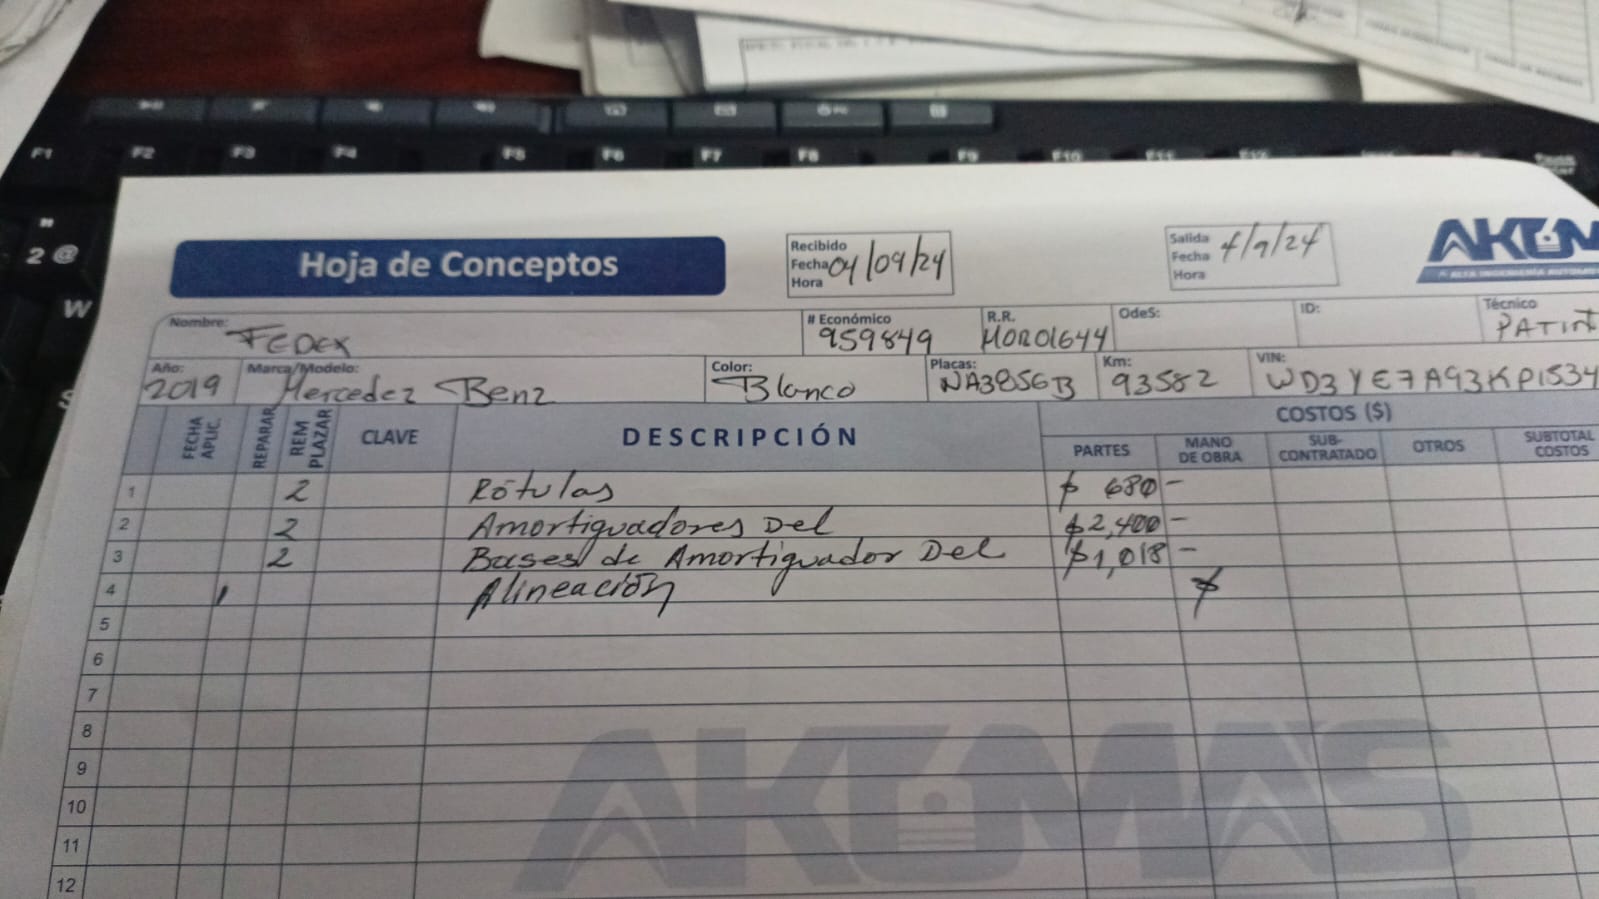 F1 F2 F3 F4 F5 F6 F7 F8 F9 F10 F11 F12
2 @
W
Hoja de Conceptos
Recibido
Fecha 04/09/24
Hora
Salida
Fecha 4/9/24
Hora
AKTM
Nombre: FEDEX
# Económico 959849
R.R. MOR01644
OdeS:
ID:
Técnico
Año: 2019
Marca/Modelo: Mercedez Benz
Color: Blanco
Placas: NA3856B
Km: 93582
VIN: WD3YE7A93KP1534
FECHA APLIC.
REPARAR
REM PLAZAR
CLAVE
DESCRIPCIÓN
COSTOS ($)
PARTES
MANO DE OBRA
SUB-CONTRATADO
OTROS
SUBTOTAL COSTOS
1 2 Rótulas $ 680-
2 2 Amortiguadores Del $2,400-
3 2 Bases de Amortiguador Del $1,018-
4 Alineación $
5
6
7
8
9
10
11
12
AKTMAS